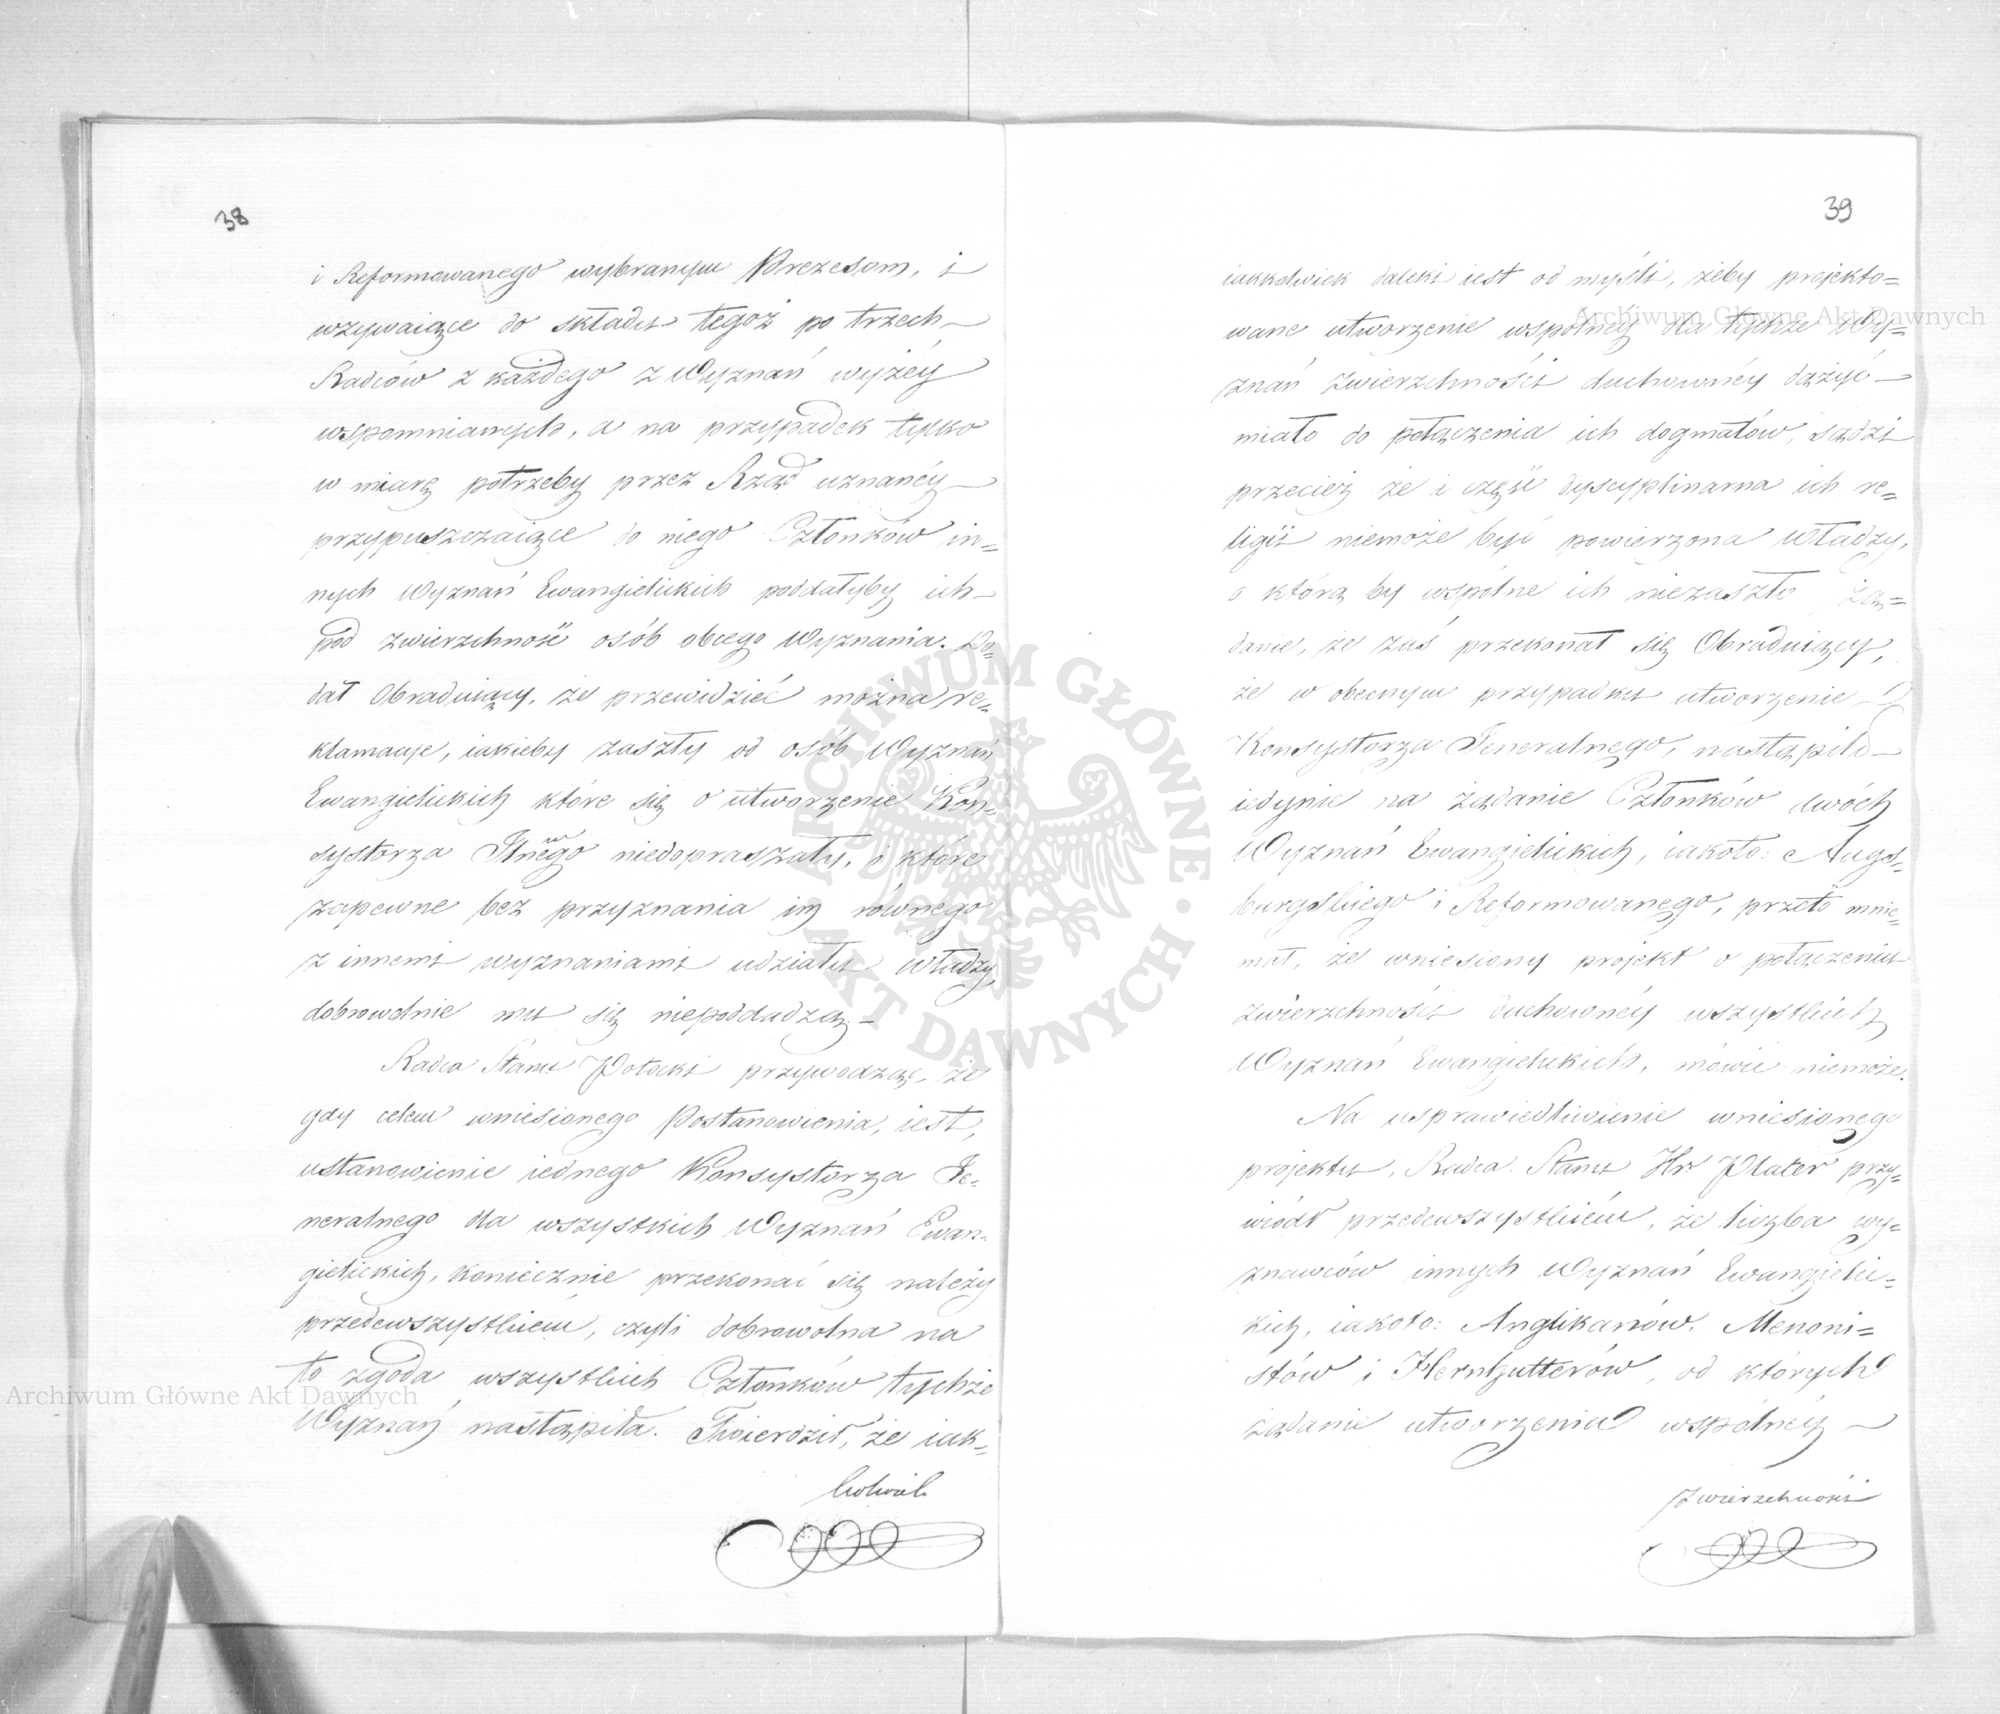 38
i Reformowanego wybranym Prezesom, i
wzywaiące do składu tegoż po trzech
Radców z każdego z Wyznań wyżéy
wspomnianych, a na przypadek tylko
w miarę potrzeby przez Rząd uznanéy
przypuszczaiące do niego Członków in=
nych Wyznań Ewangielickich poddałyby ich
pod zwierzchność osób obcego Wyznania. Do=
dał Obraduiący, że przewidzieć można re=
klamacje, iakieby zaszły od osób Wyznań
Ewangielickich które się o utworzenie Kon=
systorza Jlnego niedopraszały, i które
zapewne bez przyznania im równego
z innemi wyznaniami udziału Władzy
dobrowolnie mu się niepoddadzą.
Radca Stanu Potocki przywodząc, że
gdy celem wniesionego Postanowienia, iest,
ustanowienie iednego Konsystorza Je=
neralnego dla wszystkich Wyznań Ewan=
gielickich, koniecznie przekonać się należy
przedewszystkiem, czyli dobrowolna na
to zgoda wszystkich Członków tychże
Wyznań nastąpiła. Twierdził, że iak=
kolwiek
39
iakkolwiek daleki iest od myśli, żeby projekto=
wane utworzenie wspólnéy dla tychże Wy=
znań zwierzchności duchownéy dążyć
miało do połączenia ich dogmatów, sądzi
przecież że i część dyscyplinarna ich re=
ligii niemoże być powierzona Władzy,
o którą by wspólne ich niezaszło żą=
danie, że zaś przekonał się Obraduiący,
że w obecnym przypadku utworzenie
Konsystorza Jeneralnego, nastąpiło
iedynie na żądanie Członków dwóch
Wyznań Ewangielickich, iakoto: Augs=
burgskiego i Reformowanego, przeto mnie=
mał, że wniesiony projekt o połączeniu
zwierzchności duchownéy wszystkich
Wyznań Ewangielickich, mówić niemoże.
Na usprawiedliwienie wniesionego
projektu, Radca Stanu Hr. Plater przy=
wiódł przedewszystkiem, że liczba wy=
znawców innych Wyznań Ewangielic=
kich, iakoto: Anglikanów, Menoni=
stów i Hernhutterów, od których
żądanie utworzenia wspólnéy
zwierzchności
Archiwum Główne Akt Dawnych
Archiwum Główne Akt Dawnych
ARCHIWUM GŁÓWNE AKT DAWNYCH